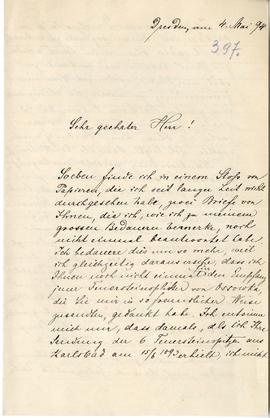 Dresden, am 4. Mai 94
397.
Sehr geehrter Herr!
Soeben finde ich in einem Stoss von
Papieren, die ich seit langer Zeit nicht
durchgesehen habe, zwei Briefe von
Ihnen, die ich, wie ich zu meinem
grossen Bedauern bemerke, noch
nicht einmal beantwortet habe.
Ich bedauere dies um so mehr, weil
ich gleichzeitig daraus ersehe, dass ich
Ihnen noch nicht einmal für den Empfang
jener Feuersteinsplitter von
die Sie mir in so freundlicher Weise
zusandten, gedankt habe. Ich entsinne
mich nur, dass damals, als ich Ihre
Sendung der 6 Feuersteinspitzen aus
Karlsbad am 15/6 1893 erhielt, ich nicht